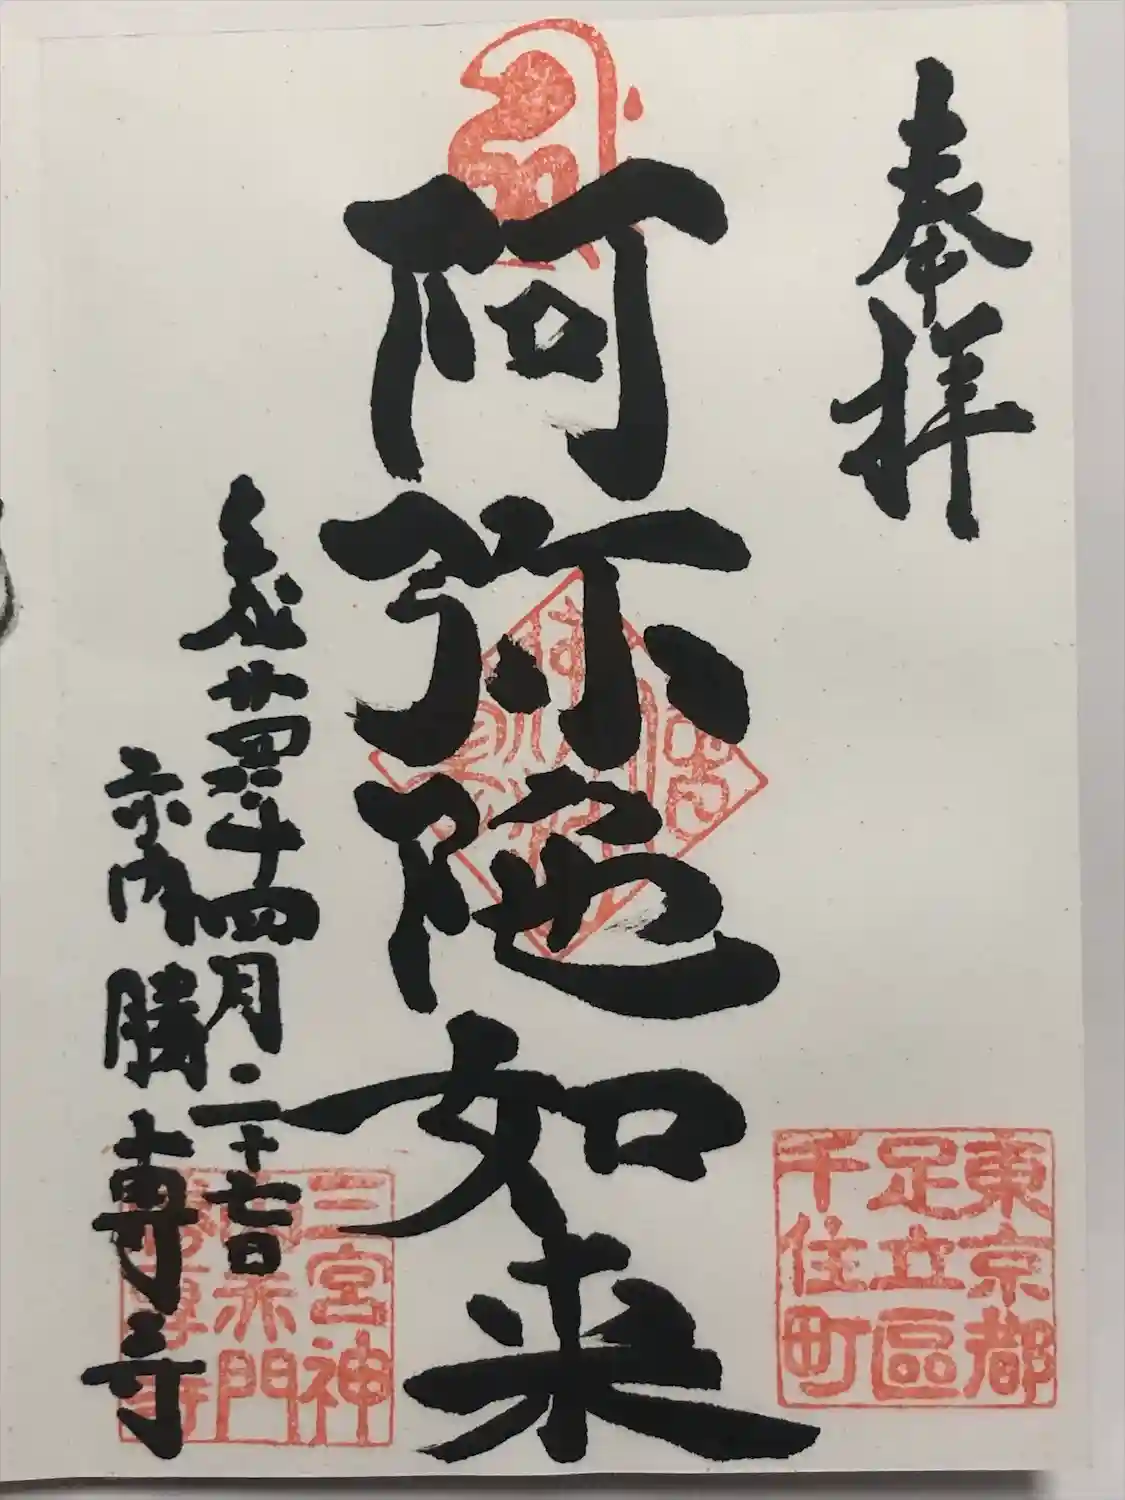 奉拝
阿弥陀如来
平成廿四年十四月二十七日
京内 勝専寺
東京都
足立區
千住町
三宮神
赤門
勝専寺